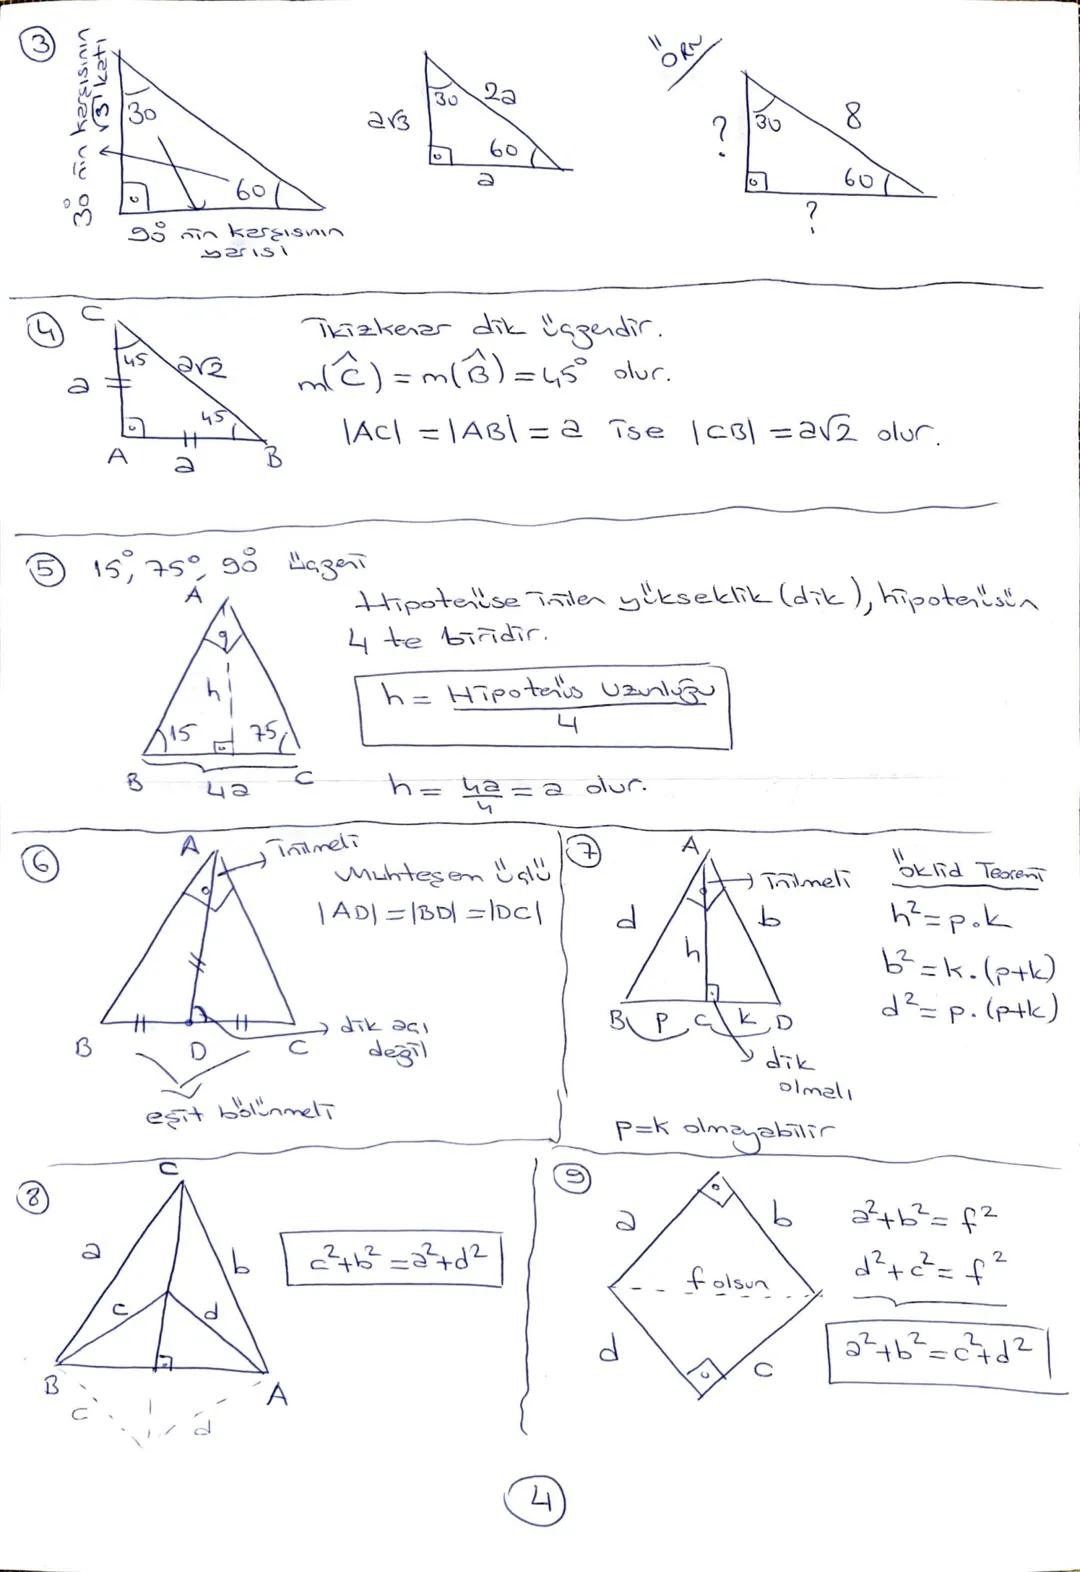 ③
30° nin karşısının
√3 katı
30
60
90° nin karşısının
yarısı
a√3
30
2a
60
a
ÖRN
?
30
8
60
?
④
C
45
a
a√2
45
A
a
B
İkizkenar dik üçgendir.
m(Ĉ) = m(B̂) = 45° olur.
|AC| = |AB| = a ise |CB| = a√2 olur.
⑤ 15°, 75°, 90° üçgeni
A
h
15
75
B
C
4a
Hipotenüse inilen yükseklik (dik), hipotenüsün
4 te biridir.
h = Hipotenüs Uzunluğu / 4
h = 4a/4 = a olur.
⑥
A
inilmeli
Muhteşem üçlü
|AD| = |BD| = |DC|
B
D
C
dik açı
değil
eşit bölünmeli
⑦
A
inilmeli
d
b
h
B
p
C
k
D
dik
olmalı
p=k olmayabilir
Öklid Teoremi
h² = p.k
b² = k.(p+k)
d² = p.(p+k)
⑧
C
a
b
c
d
B
A
c
d
c²+b² = a²+d²
⑨
a
b
f olsun
d
c
a²+b² = f²
d²+c² = f²
a²+b² = c²+d²
④